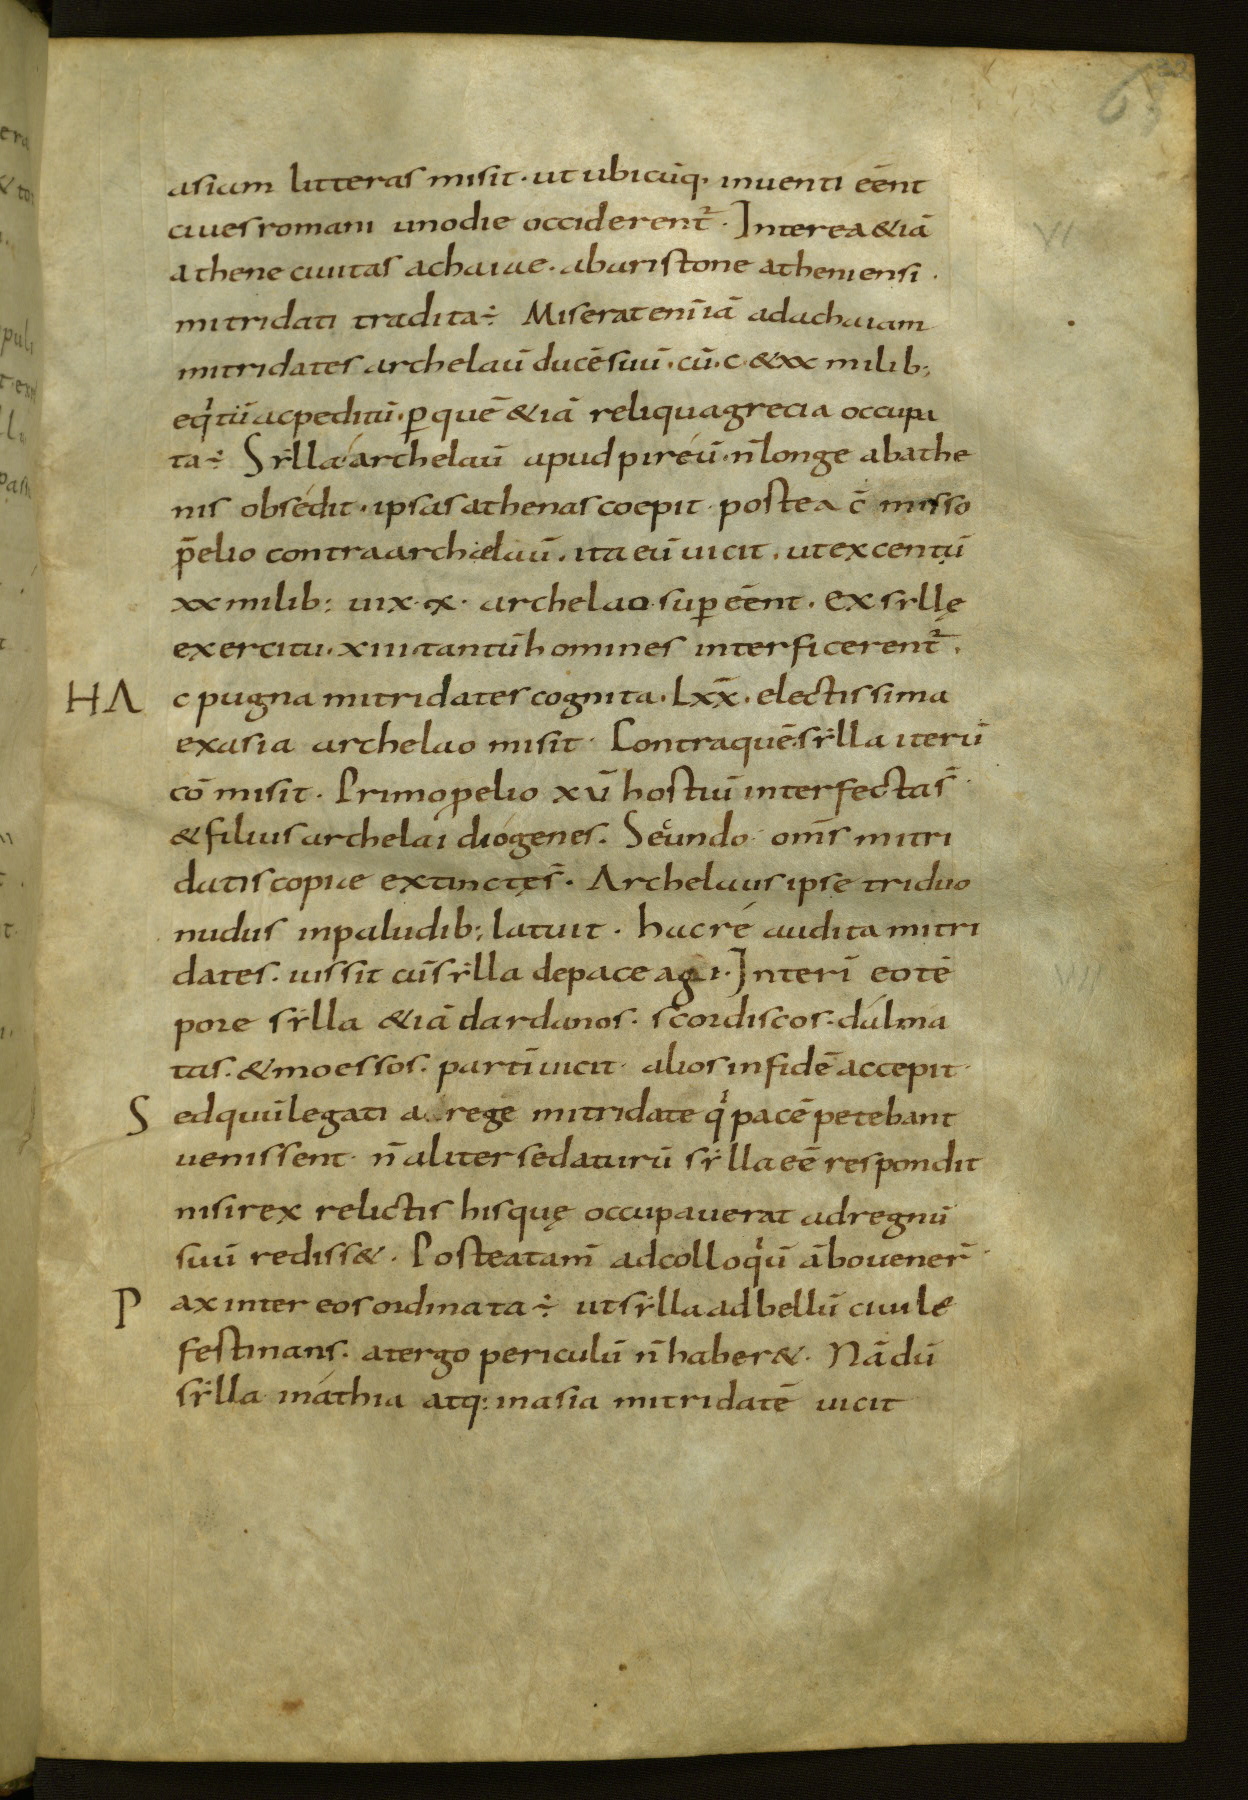 asiam litteras misit · ut ubicūq· inuenti eēnt
ciues romani uno die occiderent᷑ · Interea &iā
athene ciuitas achaiae · ab aristone atheniensi ·
mitridati tradita ÷ Miserat eni᷑ iā ad achaiam
mitridates archelaū ducē suū · cū · c · & xx milib;
eq'tū ac peditū · ꝑ quē &iā reliqua grecia occupa
ta ÷ Sẏlla archelaū apud pireū · n̄ longe ab athe
nis obsedit · ipsas athenas coepit · postea c̄ misso
p̄elio contra archelaū · ita eū uicit · ut ex centū
xx milib; uix · x · archelao suꝑ eēnt · Ex sẏllę
exercitu · xiii · tantū homines interficerent᷑ ·
HA c pugna mitridates cognita · Lxx̄ · electissima
ex asia archelao misit · Contra quē sẏlla iterū
cō misit · Primo p̄elio xv̄ hostiū interfecta s̄ ·
& filius archelai diógenes · Secundo · om̄s mitri
datis copiae extinctę s̄ · Archelaus ipse triduo
nudus in paludib; latuit · hac ré audita mitri
dates · iussit cū sẏlla de pace agi · Interī eo tē
pore sẏlla &iā dardanos · scordiscos · dálma
tas · & moessos · partī uicit · alios in fidē accepit ·
S ed quū legati a rege mitridate q' pacē petebant
uenissent · n̄ aliter se daturū sẏlla eē respondit
nisi rex relictis his quę occupauerat ad regnū
suū rediss& · Postea tam̄ ad colloq'ū ābo uener̄ ·
P ax inter eos ordinata ÷ ut sẏlla ad bellū ciuile
festinans · a tergo periculū n̄ haber& · Nā dū
sẏlla in áthia atq; in asia mitridatē uicit
VI
VII